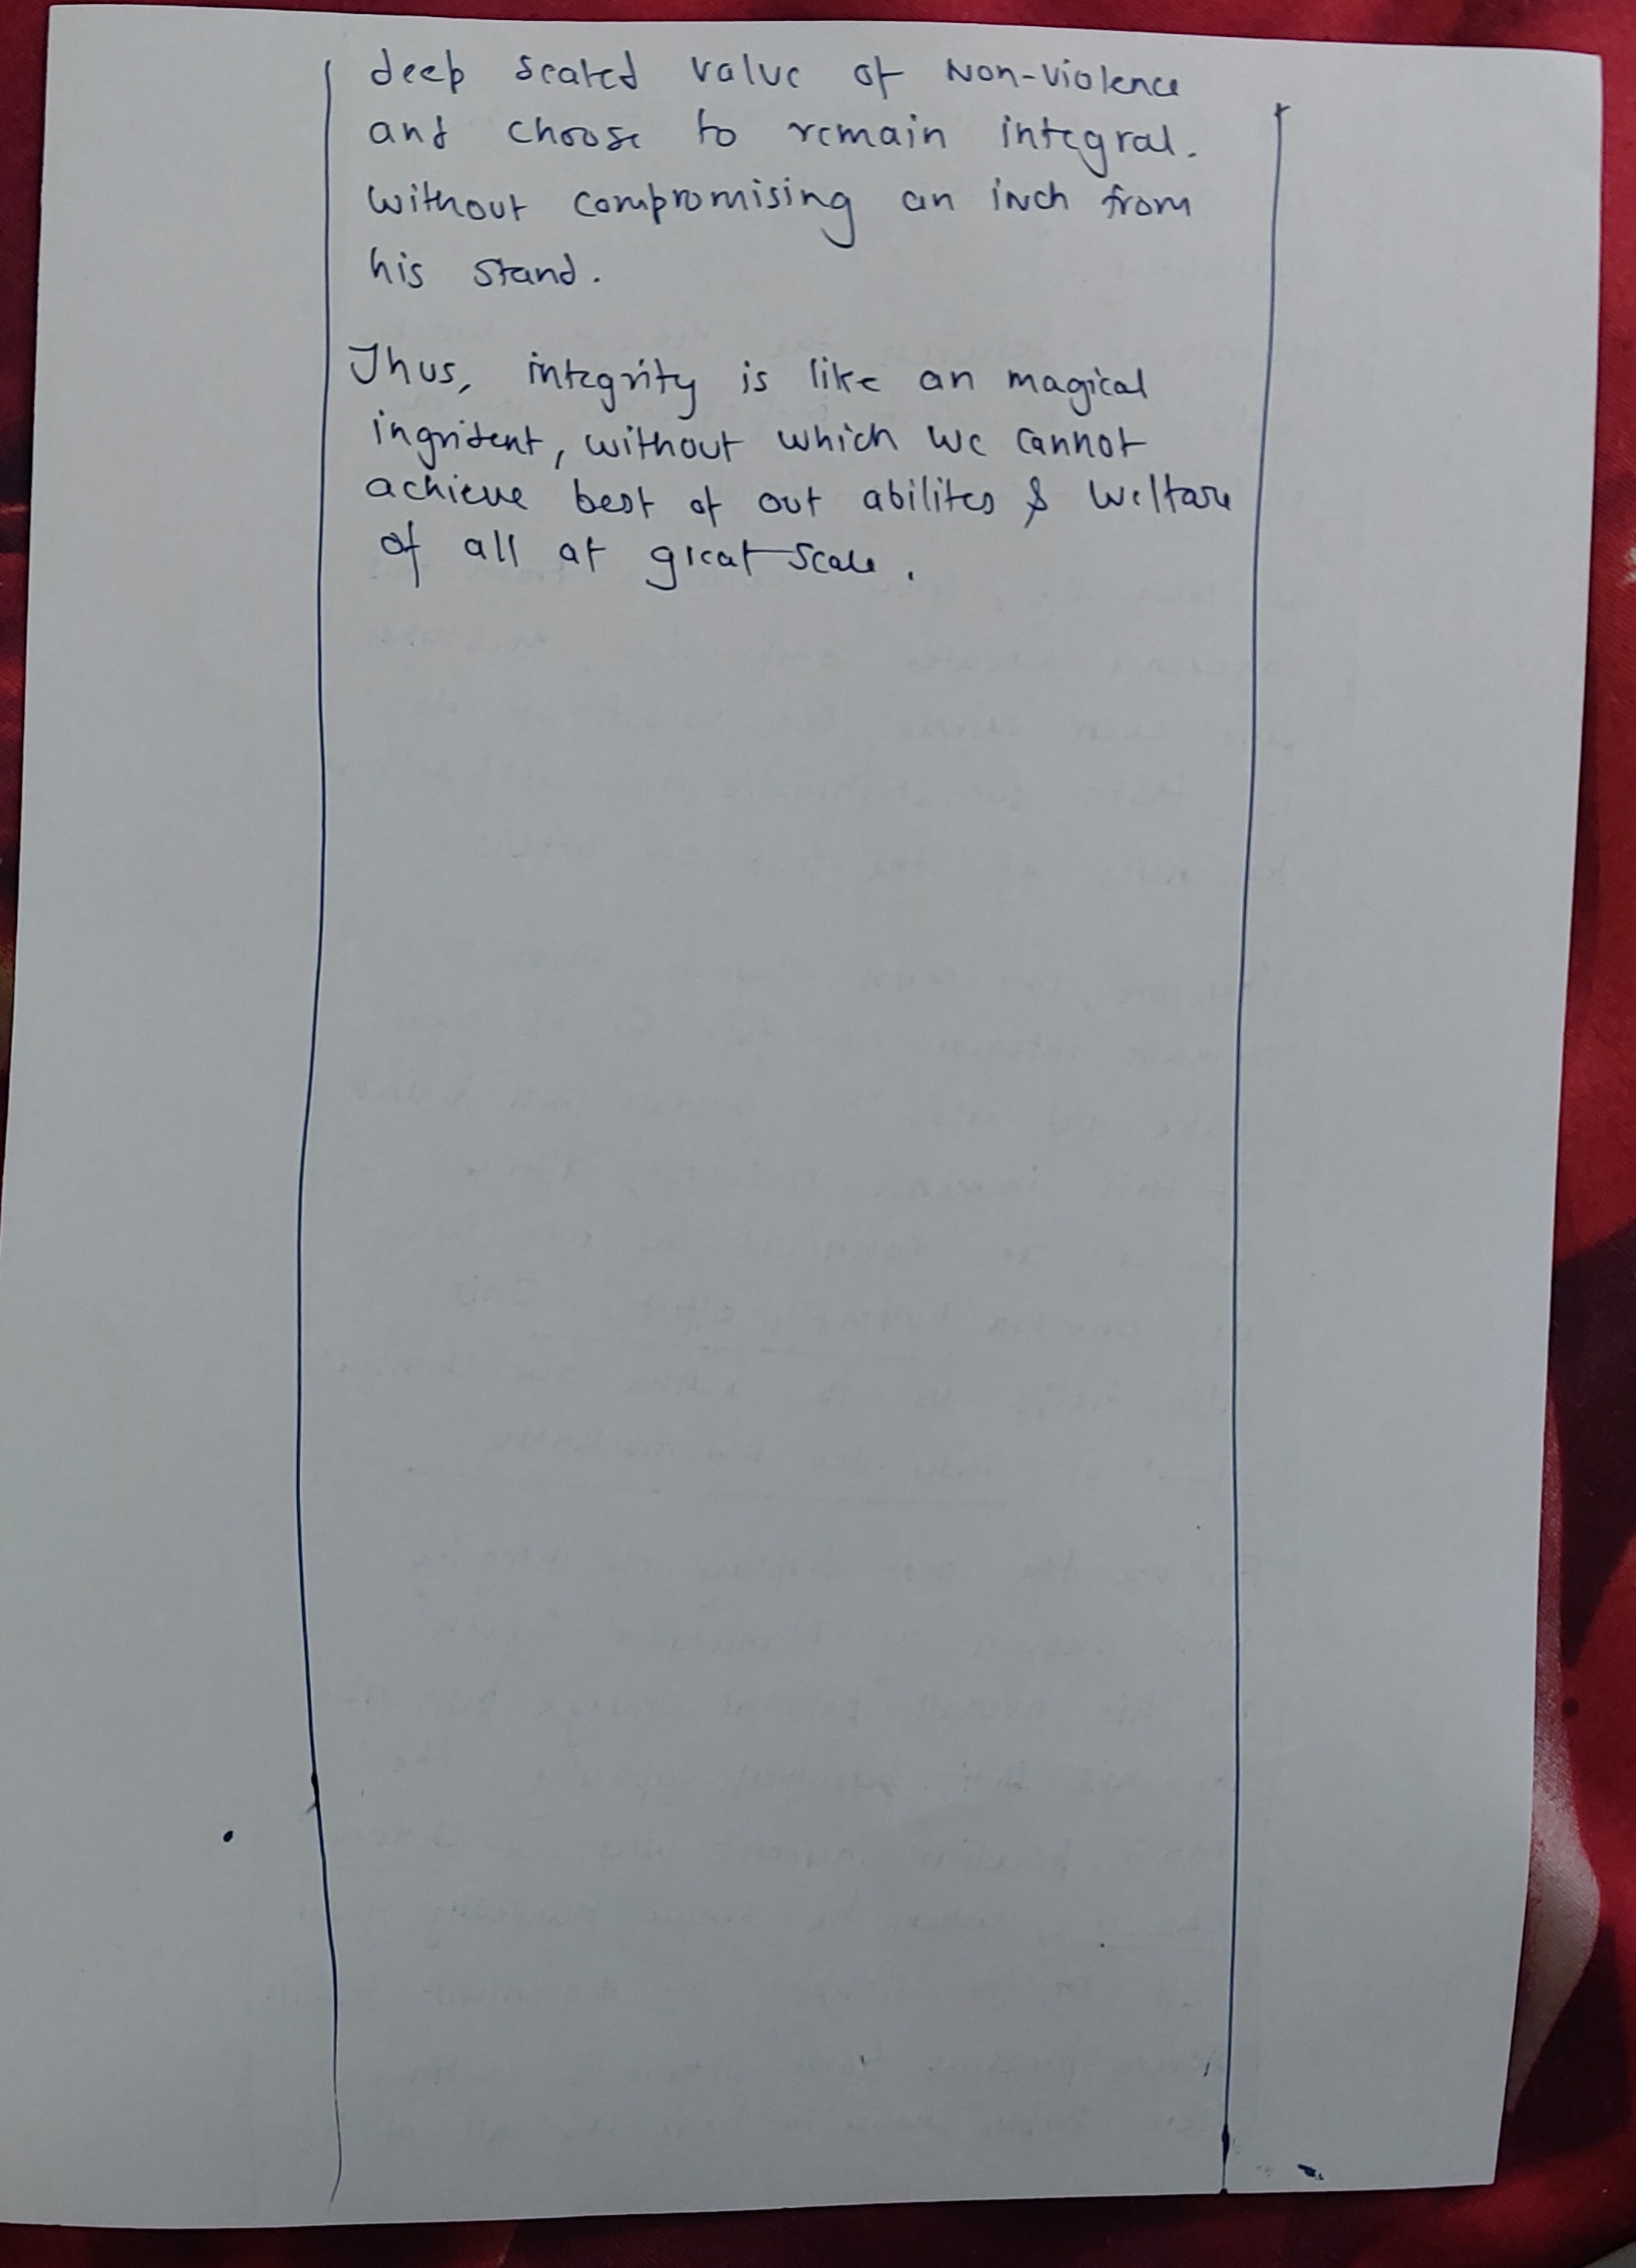 deep seated value of Non-violence
and choose to remain integral.
without compromising an inch from
his stand.
Thus, integrity is like an magical
ingrident, without which we cannot
achieve best of out abilites & welfare
of all at great scale.